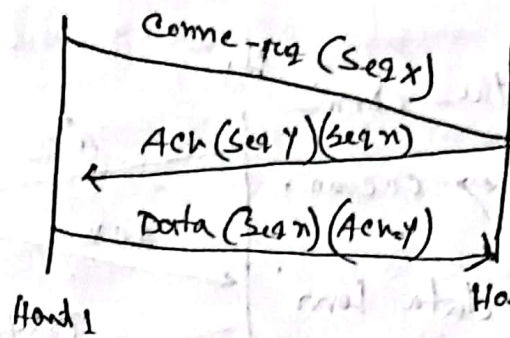 Conne-req (Seq x)
Ack (Seq y) (Seq x)
Data (Seq x) (Ack y)
Host 1 Ho